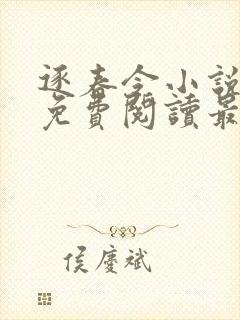 逐春令小說
免費閱讀最
侯慶斌